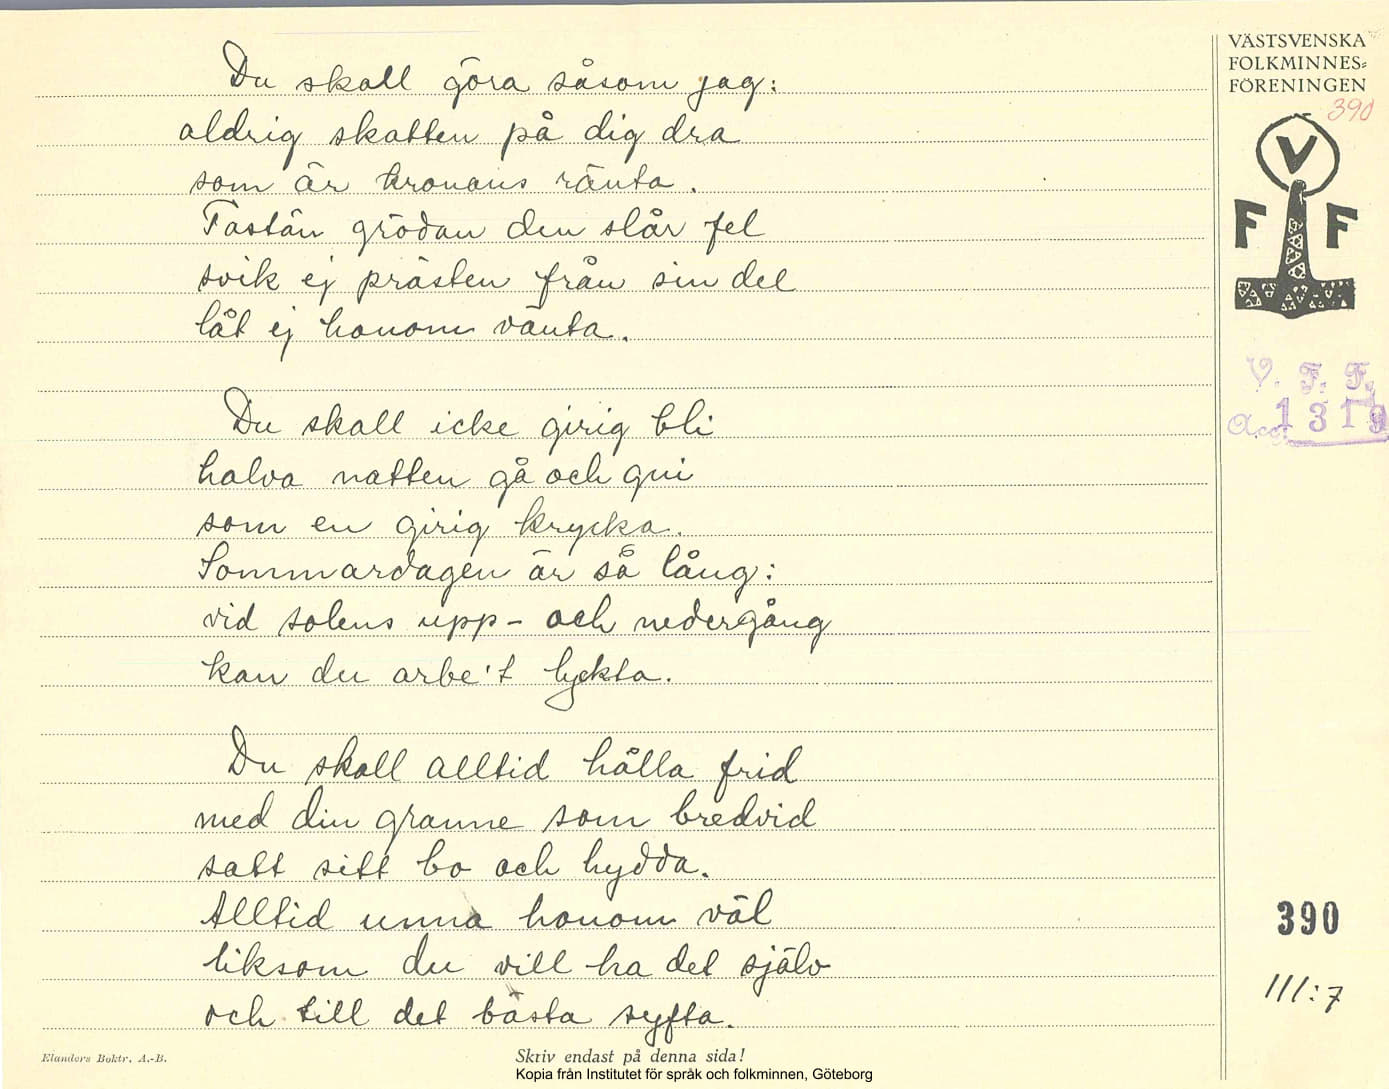 Du skall göra såsom jag:
aldrig skatten på dig dra
som är kronans ränta.
Fastän grödan den slår fel
svik ej prästen från sin del
låt ej honom vänta.
Du skall icke girig bli
halva natten gå och gni
som en girig krycka.
Sommardagen är så lång:
vid solens upp- och nedergång
kan du arbe't lyckta.
Du skall alltid hålla frid
med din granne som bredvid
satt sitt bo och hydda.
Alltid unna honom väl
liksom du vill ha det själv
och till det bästa syfta.
VÄSTSVENSKA
FOLKMINNES-
FÖRENINGEN
390
V
F F
V. F. F.
Acc. 1319
390
III:7
Elanders Boktr. A.-B.
Skriv endast på denna sida!
Kopia från Institutet för språk och folkminnen, Göteborg